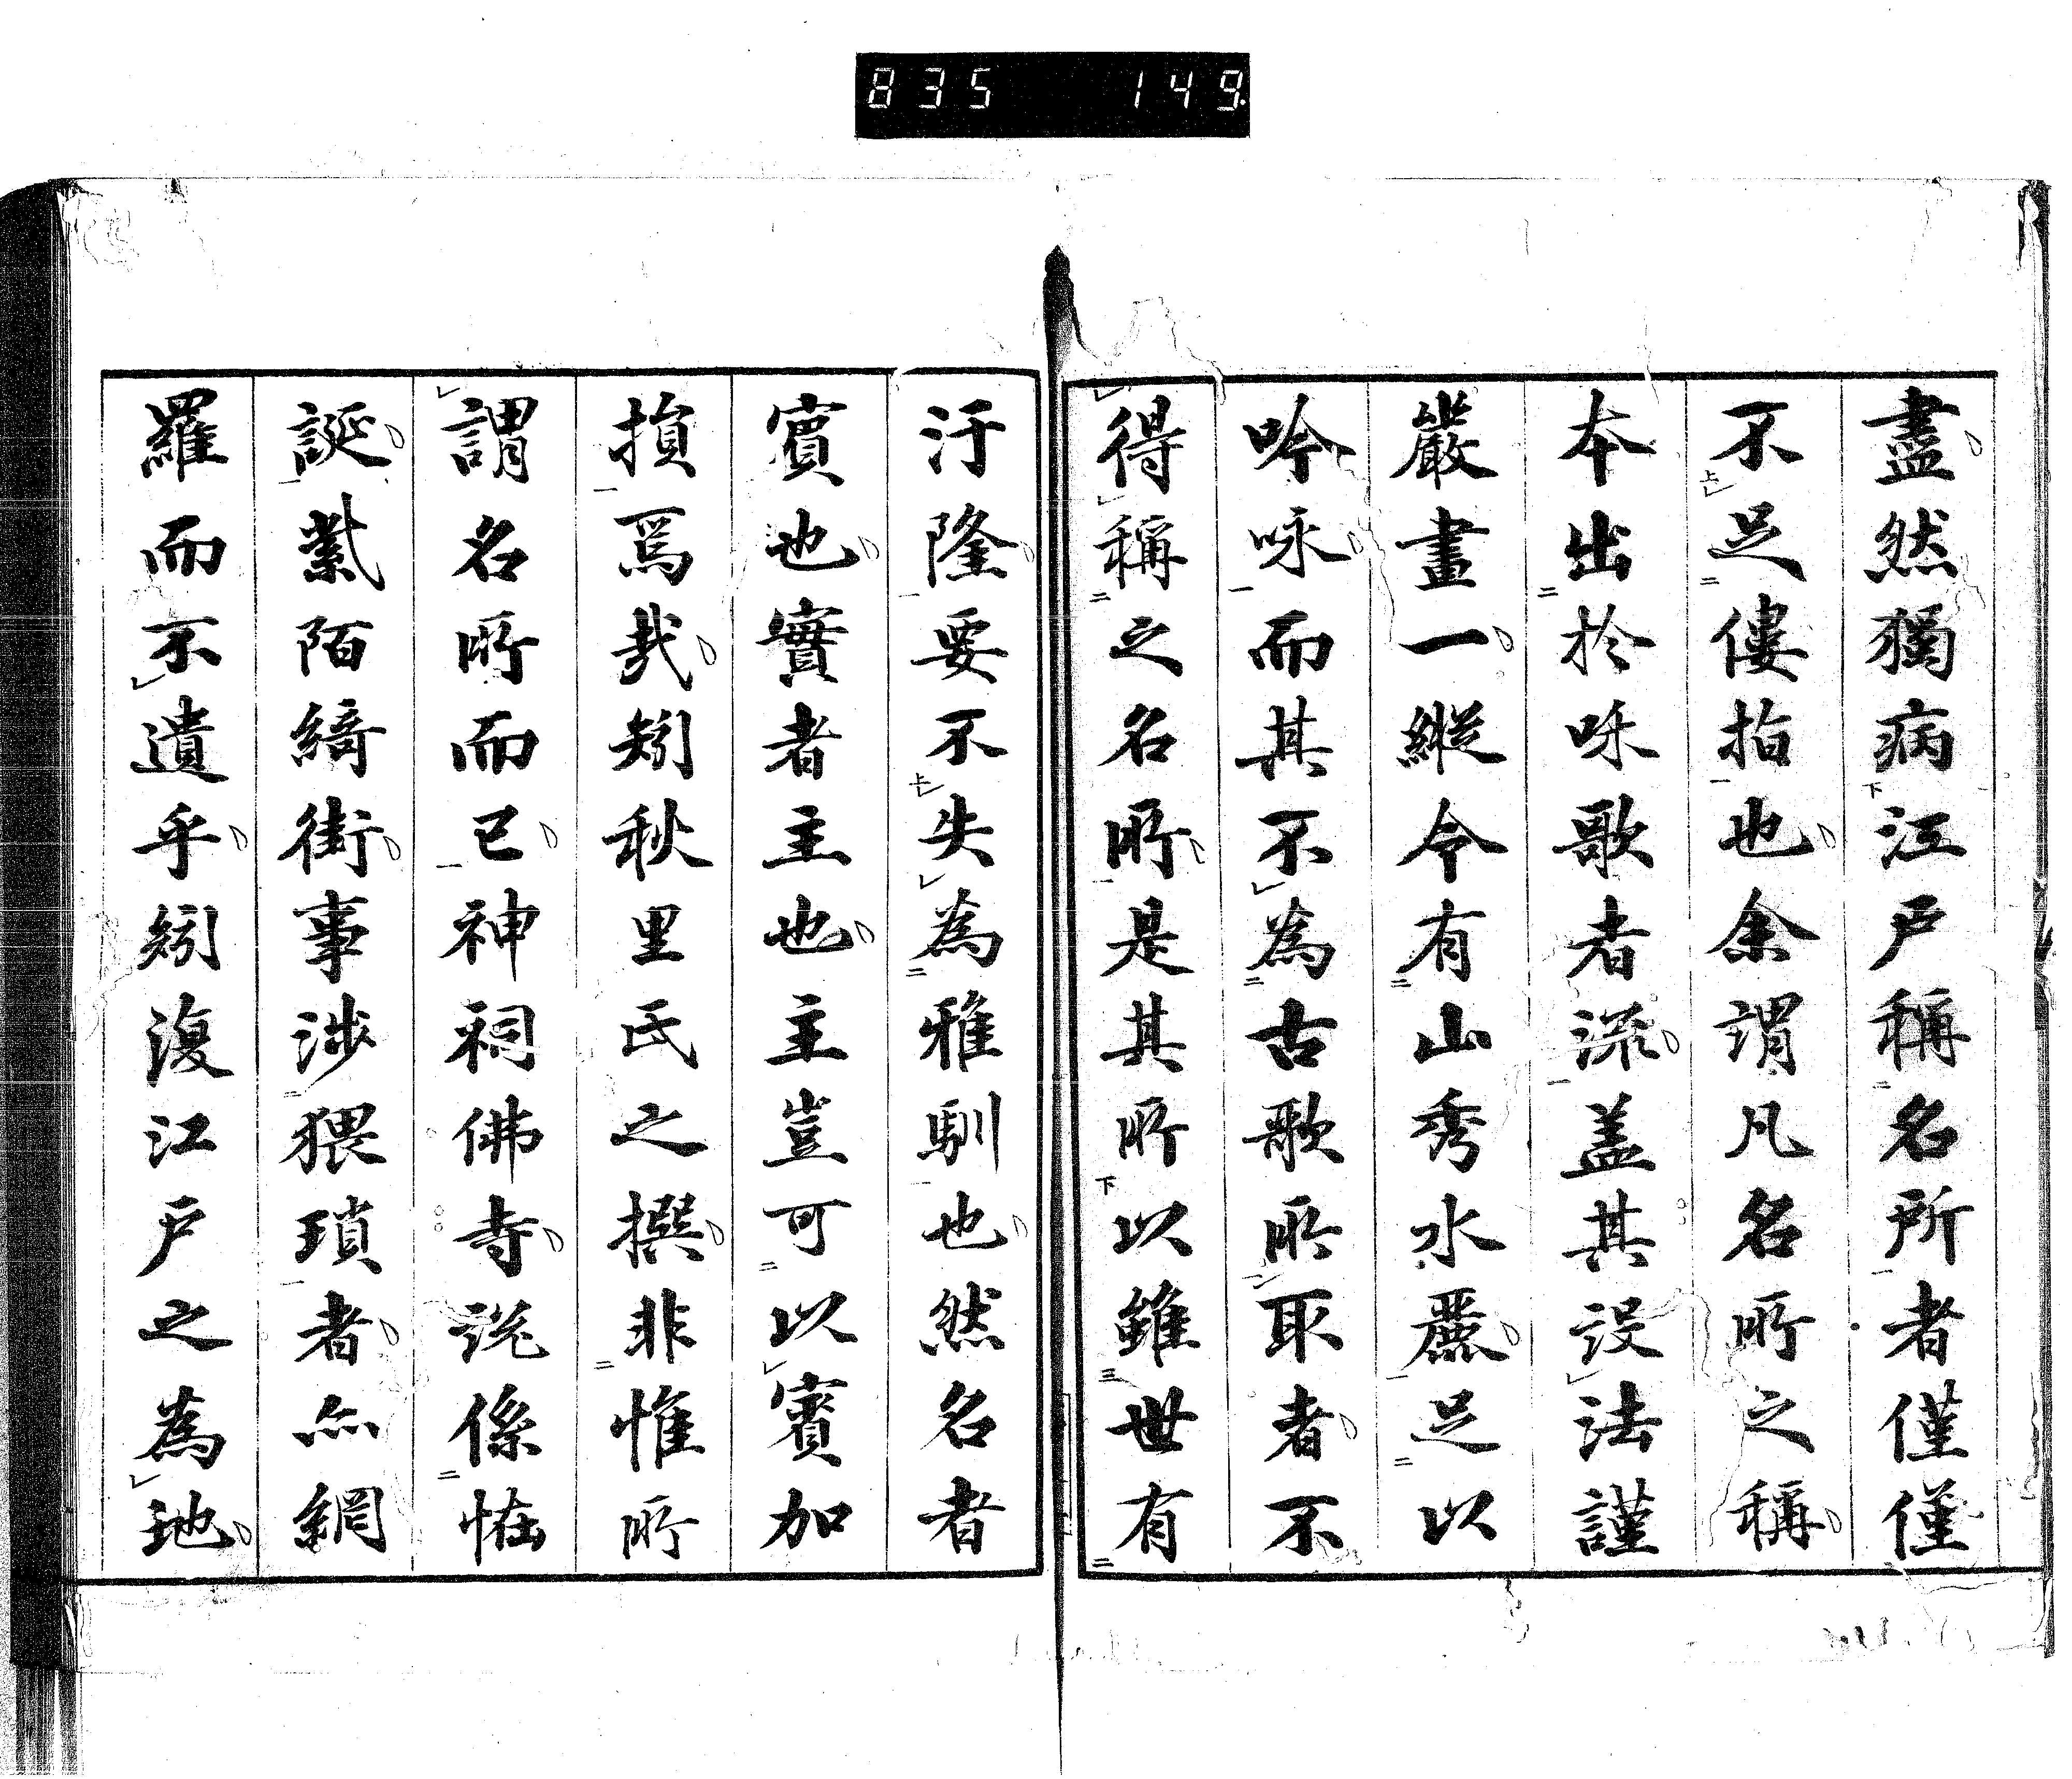 835 149
盡然獨病江戸稱名所者僅僅
不足僂指也余謂凡名所之稱
本出於咏歌者流盖其設法謹
嚴畫一縱令有山秀水麗足以
吟咏而其不為古歌所取者不
得稱之名所是其所以雖世有
汙隆要不失為雅馴也然名者
賓也實者主也主豈可以賓加
損焉哉矧秋里氏之撰非惟所
謂名所而已神祠佛寺説係恠
誕紫陌綺街事涉猥瑣者亦網
羅而不遺乎矧復江戸之為地